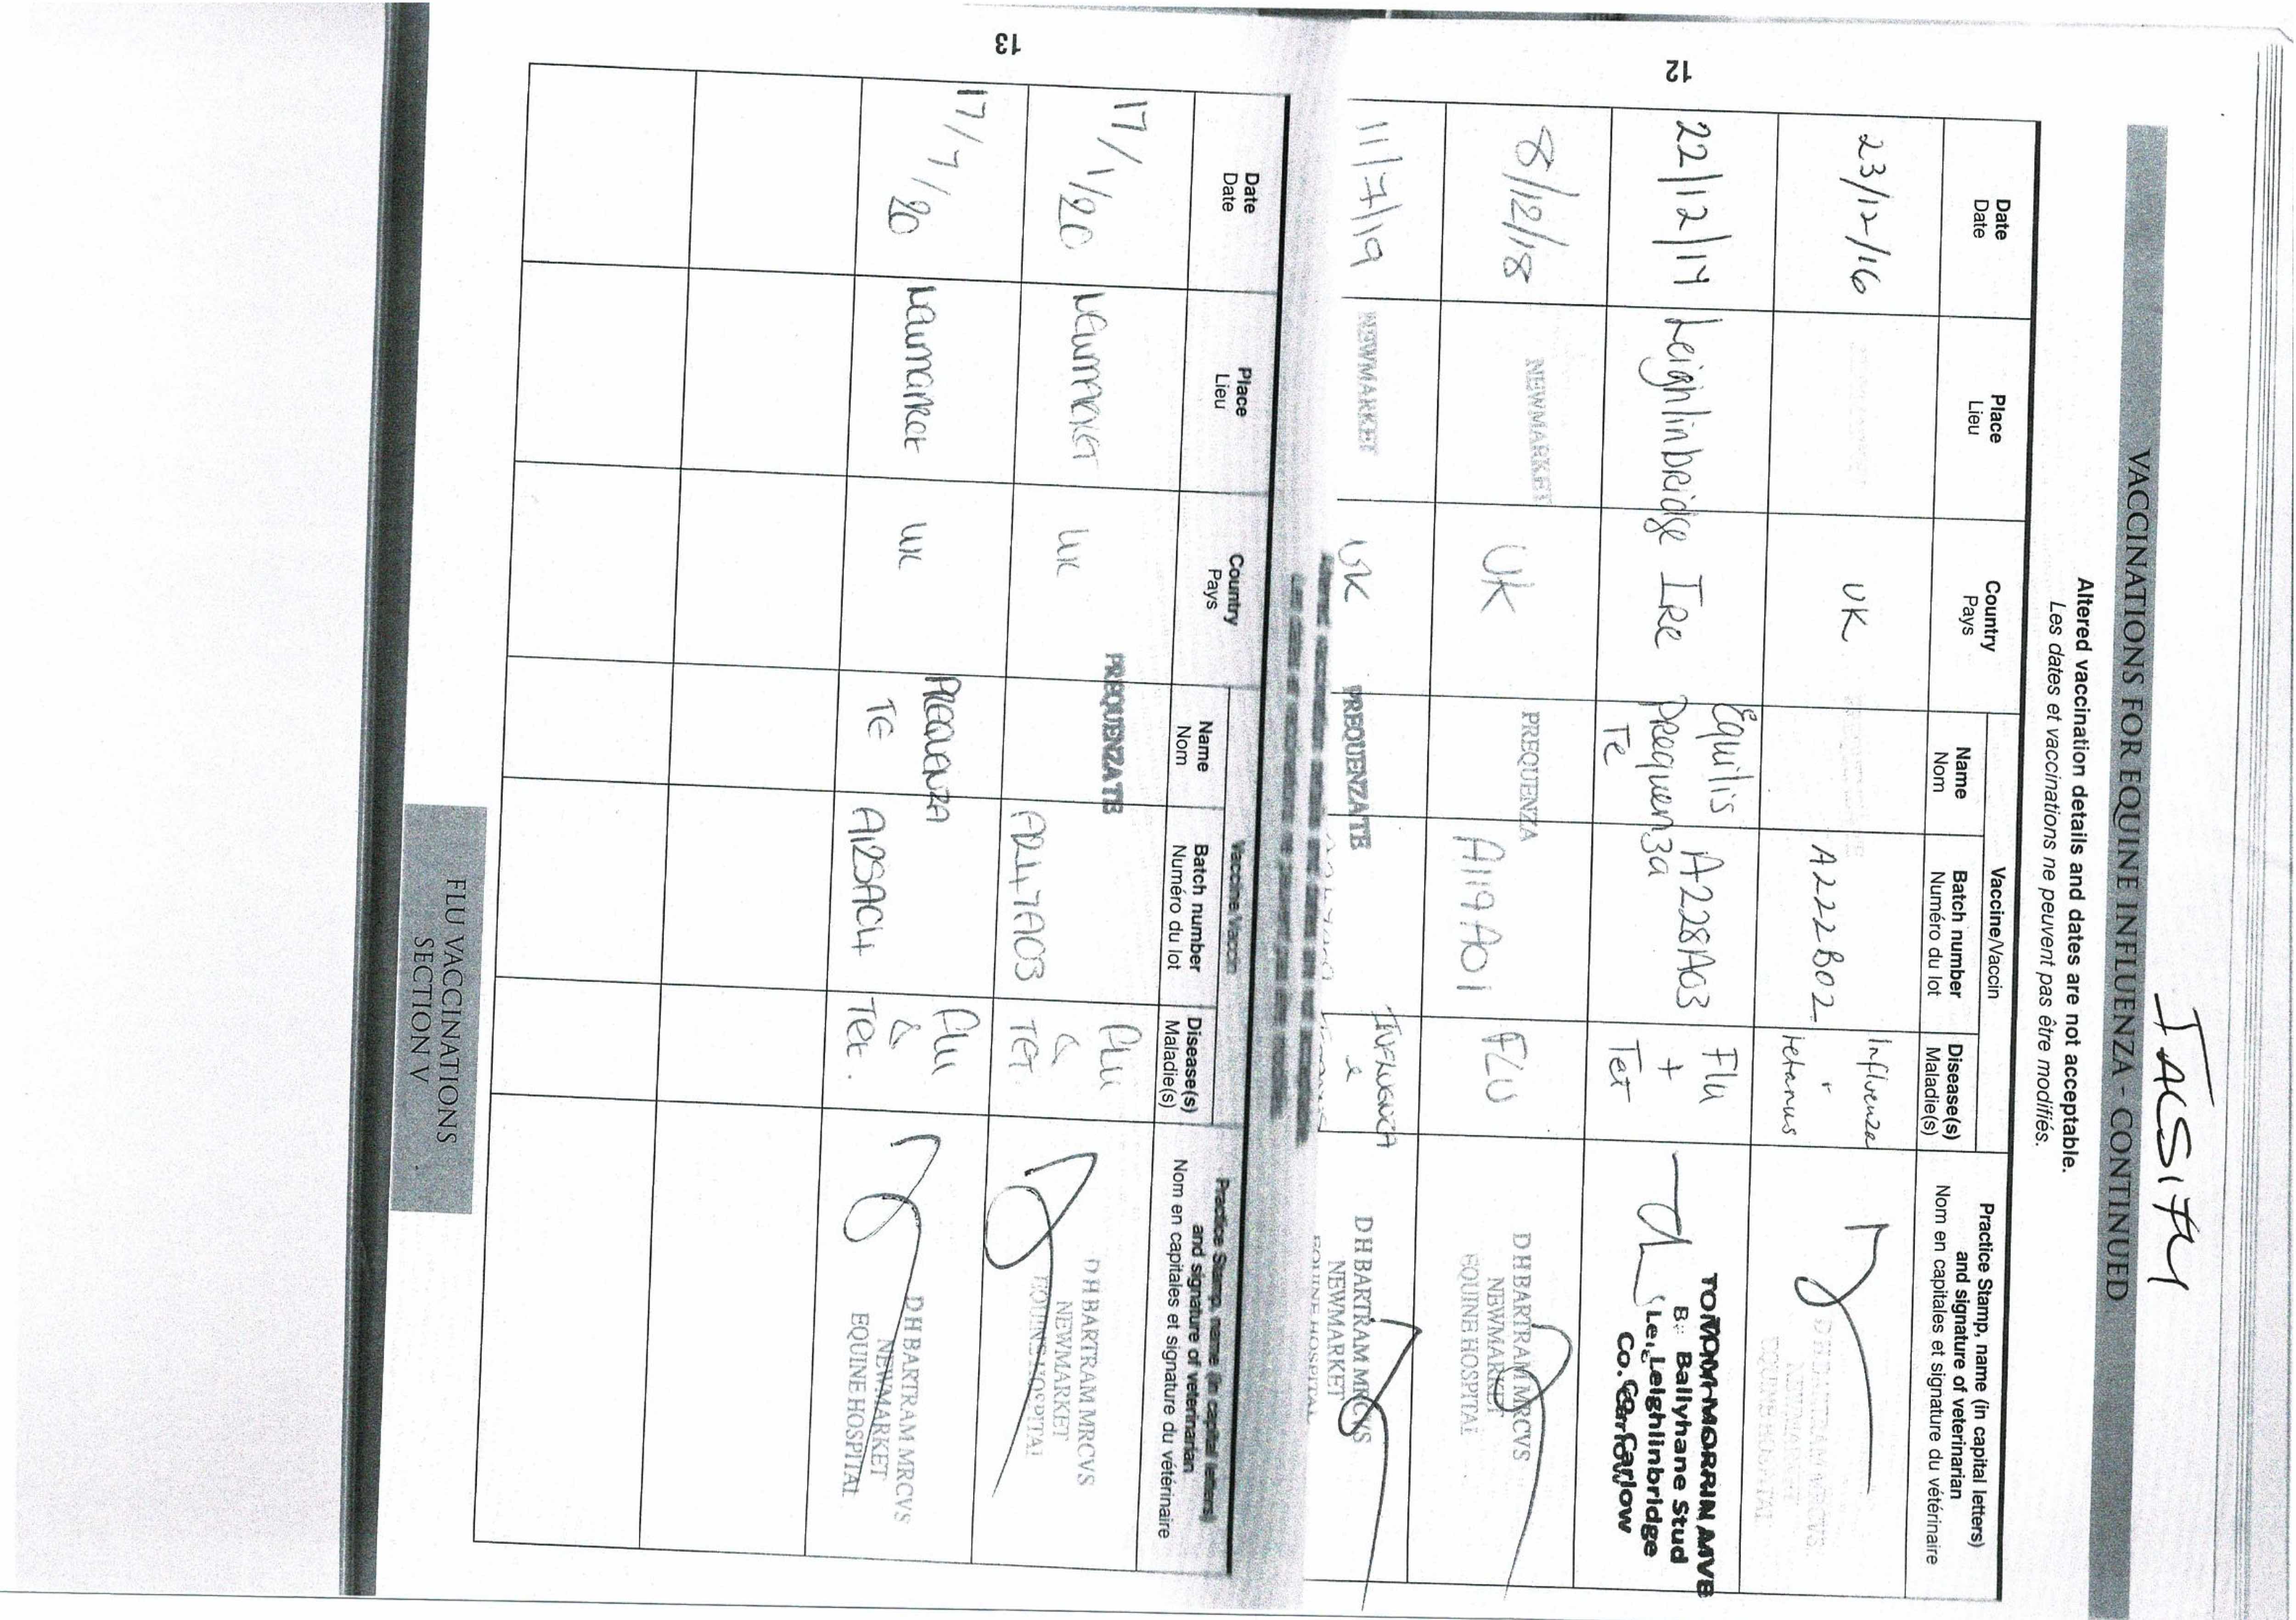 TACSITM
VACCINATIONS FOR EQUINE INFLUENZA - CONTINUED
Altered vaccination details and dates are not acceptable.
Les dates et vaccinations ne peuvent pas être modifiés.
Date
Date
Place
Lieu
Country
Pays
Vaccine/Vaccin
Name
Nom
Batch number
Numéro du lot
Disease(s)
Maladie(s)
Practice Stamp, name (in capital letters)
and signature of veterinarian
Nom en capitales et signature du vétérinaire
23/12/16
UK
A222B02
Influenza
tetanus
22/12/17
Leighlinbridge
Ire
Equilis
Prequenza
Te
A228A03
Flu
+
Tet
TOM MORRIN MVB
Ballyhane Stud
Leighlinbridge
Co. Carlow
8/12/18
NEWMARKET
UK
PREQUENZA
A119A01
FLU
D H BARTRAM MRCVS
NEWMARKET
EQUINE HOSPITAL
11/7/19
NEWMARKET
UK
PREQUENZA TE
INFLUENZA
&
D H BARTRAM MRCVS
NEWMARKET
EQUINE HOSPITAL
12
Vaccine/Vaccin
Date
Date
Place
Lieu
Country
Pays
Name
Nom
Batch number
Numéro du lot
Disease(s)
Maladie(s)
Practice Stamp, name (in capital letters)
and signature of veterinarian
Nom en capitales et signature du vétérinaire
17/1/20
Newmarket
UK
PREQUENZA TE
A247A03
Flu
&
TET
D H BARTRAM MRCVS
NEWMARKET
EQUINE HOSPITAL
17/7/20
Newmarket
UK
PREQUENZA
TE
Flu
&
Tet.
D H BARTRAM MRCVS
NEWMARKET
EQUINE HOSPITAL
13
FLU VACCINATIONS
SECTION V